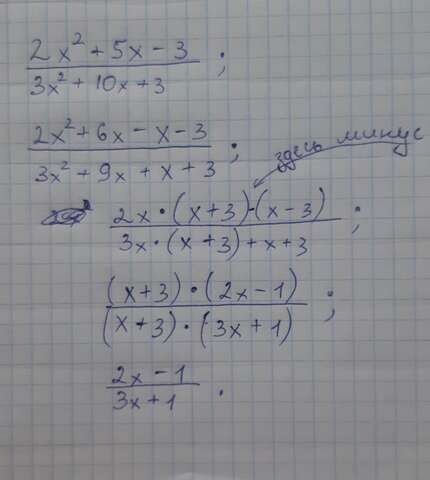 (2x² + 5x - 3)/(3x² + 10x + 3) ;
(2x² + 6x - x - 3)/(3x² + 9x + x + 3) ;
здесь минус
(2x·(x+3)-(x-3))/(3x·(x+3)+x+3) ;
((x+3)·(2x-1))/((x+3)·(3x+1)) ;
(2x-1)/(3x+1) .